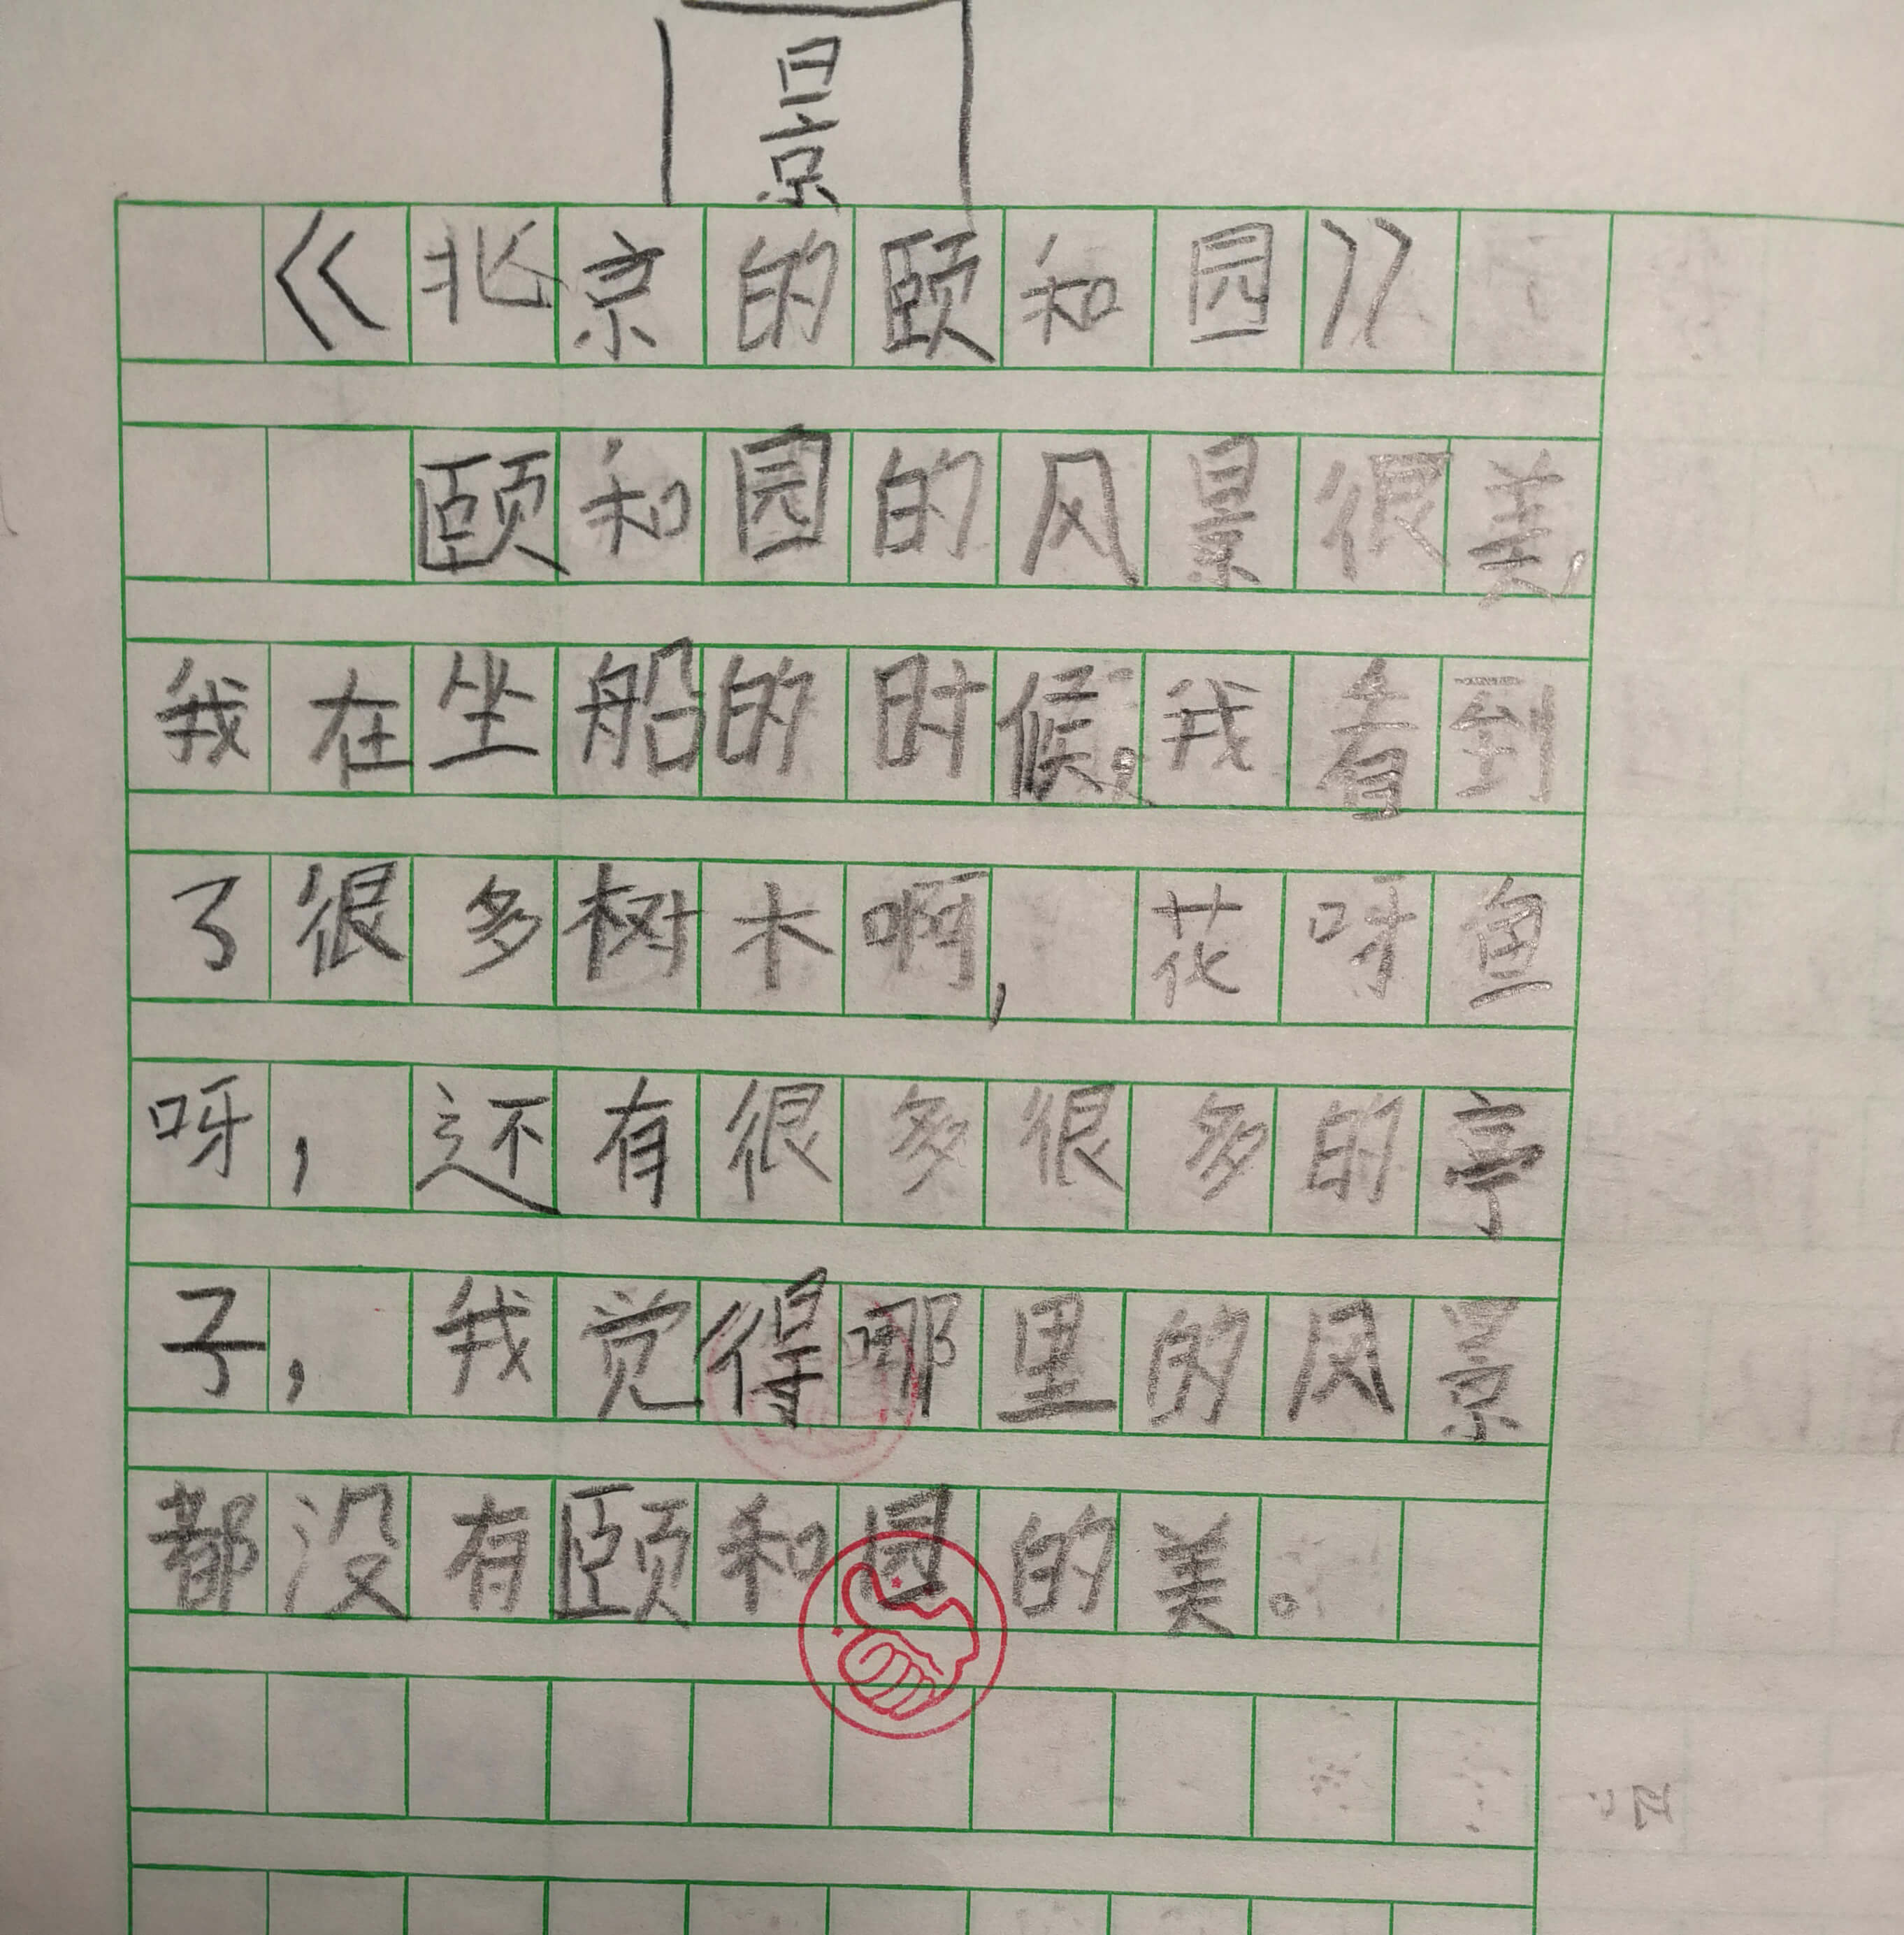 景
《北京的颐和园》
颐和园的风景很美,
我在坐船的时候,我看到
了很多树木啊,花呀鱼
呀,还有很多很多的亭
子,我觉得哪里的风景
都没有颐和园的美。